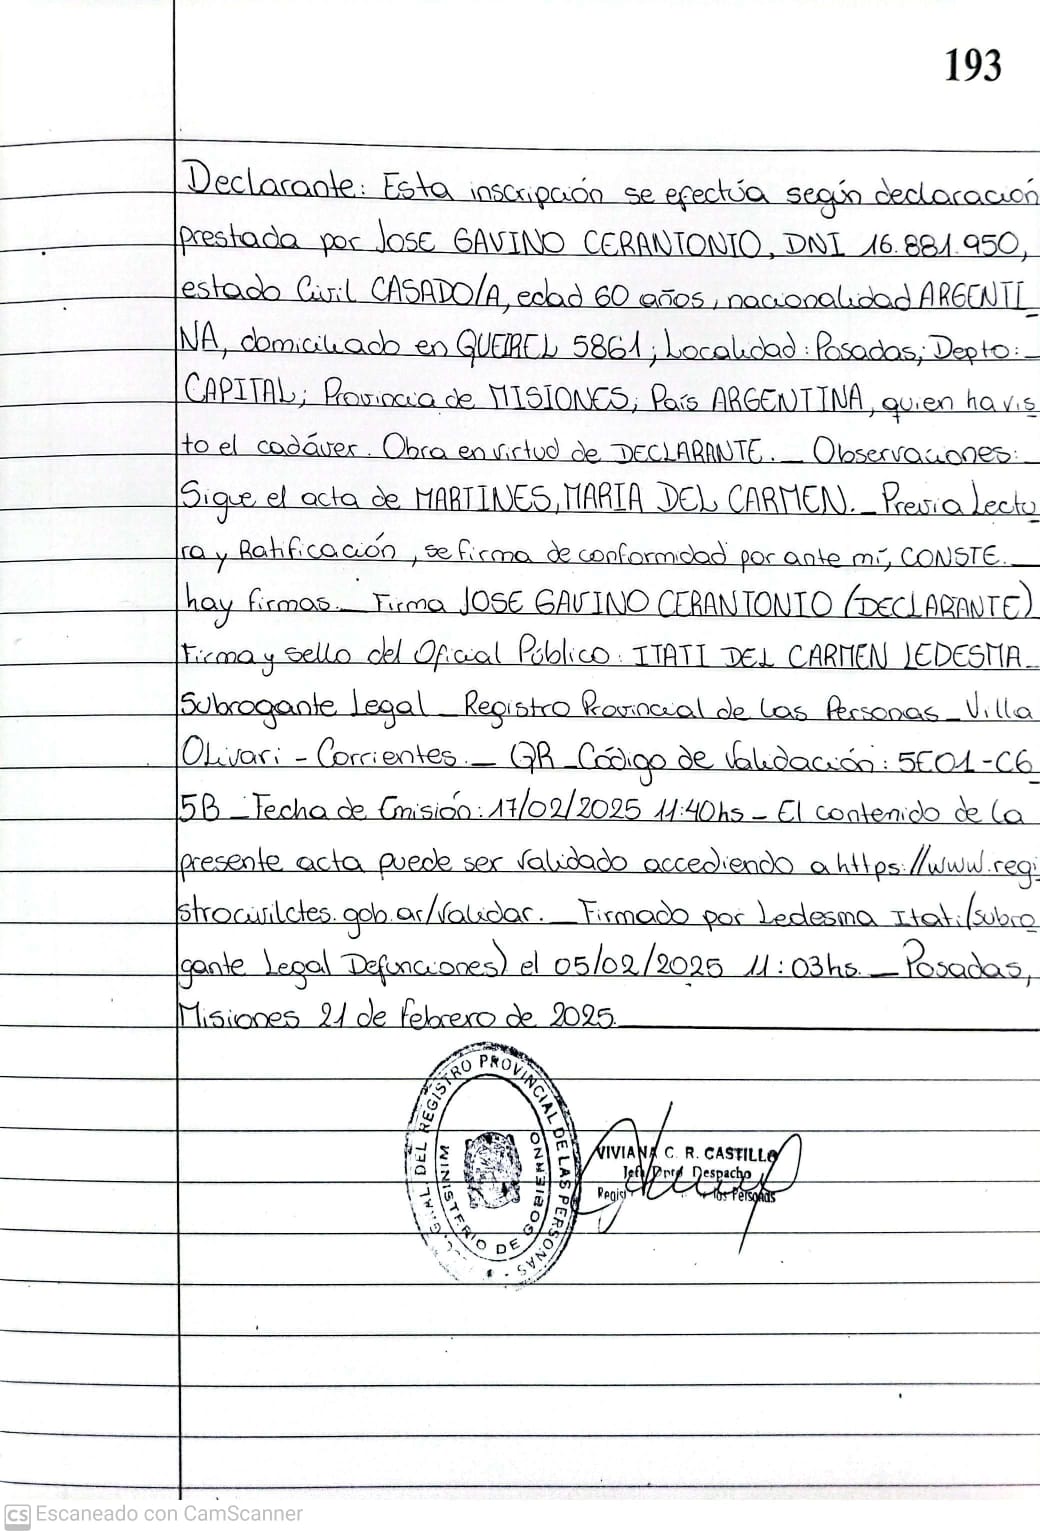 193
Declarante: Esta inscripción se efectúa según declaración
prestada por JOSE GAVINO CERANTONIO, DNI 16.881.950,
estado Civil CASADO/A, edad 60 años, nacionalidad ARGENTI
NA, domiciliado en QUEIREL 5861; Localidad: Posadas; Depto:
CAPITAL; Provincia de MISIONES; País ARGENTINA, quien ha vis
to el cadáver. Obra en virtud de DECLARANTE. _ Observaciones:
Sigue el acta de MARTINES, MARIA DEL CARMEN. _ Previa Lectu
ra y Ratificación, se firma de conformidad por ante mí, CONSTE. _
hay firmas. _ Firma JOSE GAVINO CERANTONIO (DECLARANTE)
Firma y sello del Oficial Público: ITATI DEL CARMEN LEDESMA _
Subrogante Legal _ Registro Provincial de las Personas _ Villa
Olivari - Corrientes. _ QR _ Código de Validación: 5E01-C6
5B _ Fecha de Emisión: 17/02/2025 11:40hs - El contenido de la
presente acta puede ser validado accediendo a https://www.regi
strocivilctes.gob.ar/validar. _ Firmado por Ledesma Itati (subro
gante Legal Defunciones) el 05/02/2025 11:03hs. _ Posadas,
Misiones 21 de febrero de 2025.
GRAL. DEL REGISTRO PROVINCIAL DE LAS PERSONAS
MINISTERIO DE GOBIERNO
VIVIANA C. R. CASTILLO
Jefa Dpto Despacho
las Personas
CS Escaneado con CamScanner